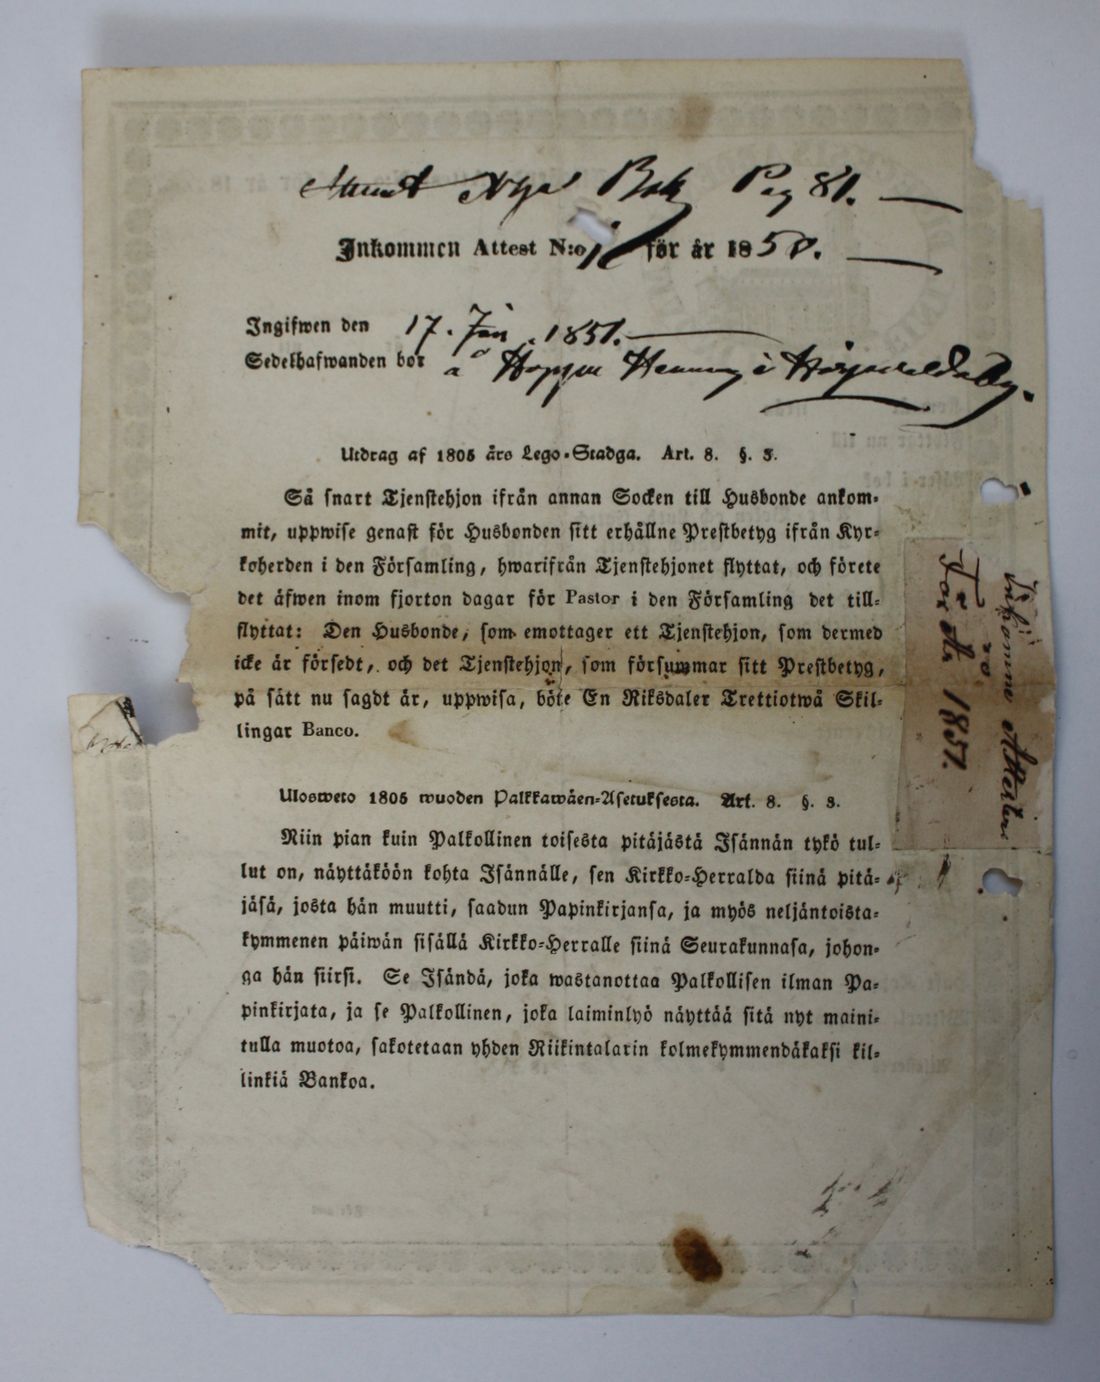 Nya Bok Pag 81.
Inkommen Attest N:o 1 för år 1850.
Ingifwen den 17. Jan. 1851.
Sedelhafwanden bor å Hoppu Hemman i
Utdrag af 1805 års Lego-Stadga. Art. 8. §. 3.
Så snart Tjenstehjon ifrån annan Socken till Husbonde ankom-
mit, uppwise genast för Husbonden sitt erhållne Prestbetyg ifrån Kyr-
koherden i den Församling, hwarifrån Tjenstehjonet flyttat, och förete
det äfwen inom fjorton dagar för Pastor i den Församling det till-
flyttat: Den Husbonde, som emottager ett Tjenstehjon, som dermed
icke är försedt, och det Tjenstehjon, som försummar sitt Prestbetyg,
på sätt nu sagdt är, uppwisa, böte En Riksdaler Trettiotwå Skil-
lingar Banco.
Ulosweto 1805 wuoden Palkkawäen-Asetuksesta. Art. 8. §. 3.
Niin pian kuin Palkollinen toisesta pitäjästä Isännän tykö tul-
lut on, näyttäköön kohta Isännälle, sen Kirkko-Herralda siinä pitä-
jäsä, josta hän muutti, saadun Papinkirjansa, ja myös neljäntoista-
kymmenen päiwän sisällä Kirkko-Herralle siinä Seurakunnasa, johon-
ga hän siirsi. Se Isändä, joka wastanottaa Palkollisen ilman Pa-
pinkirjata, ja se Palkollinen, joka laiminlyö näyttää sitä nyt maini-
tulla muotoa, sakotetaan yhden Riikintalarin kolmekymmendäkaksi kil-
linkiä Bankoa.
Inkomne Attester
För år 1851.